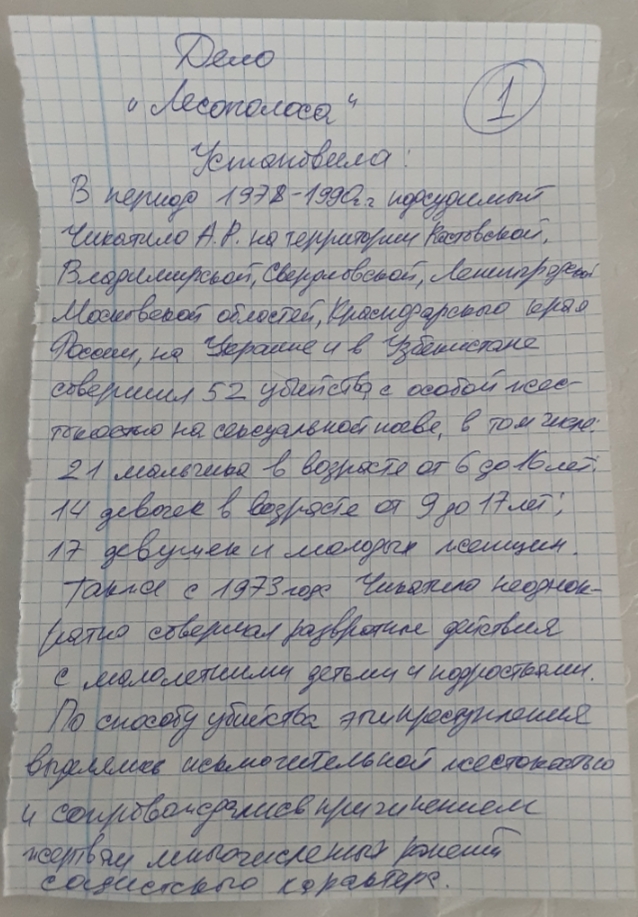 Дело
"Лесополоса"
1
Установила:
В период 1978-1990г.г подсудимый
Чикатило А.Р. на территории Ростовской,
Владимирской, Свердловской, Ленинградской
Московской областей, Краснодарского края
России, на Украине и в Узбекистане
совершил 52 убийства с особой жес-
токостью на сексуальной почве, в том числе:
21 мальчика в возрасте от 6 до 16 лет;
14 девочек в возрасте от 9 до 17 лет;
17 девушек и молодых женщин.
Также с 1973 года Чикатило неоднок-
ратно совершал развратные действия
с малолетними детьми и подростками.
По способу убийства эти преступления
выделялись исключительной жестокостью
и сопровождались причинением
жертвам многочисленых ранений
садистского характера.